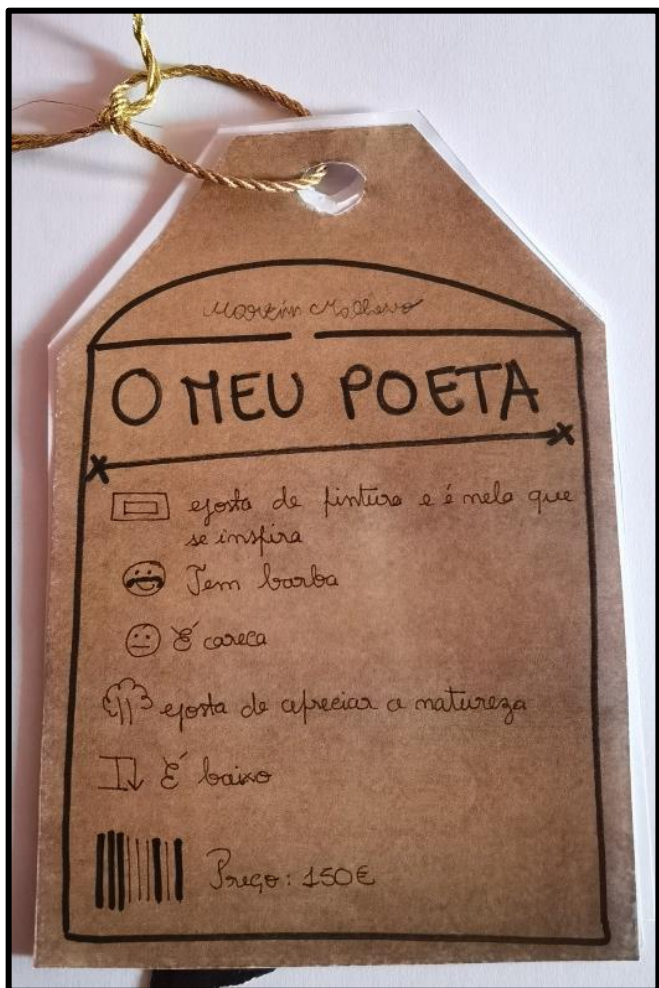 Martim Malheiro
O MEU POETA
Gosta de pintura e é nela que
se inspira
Tem barba
É careca
Gosta de apreciar a natureza
É baixo
Preço: 150€